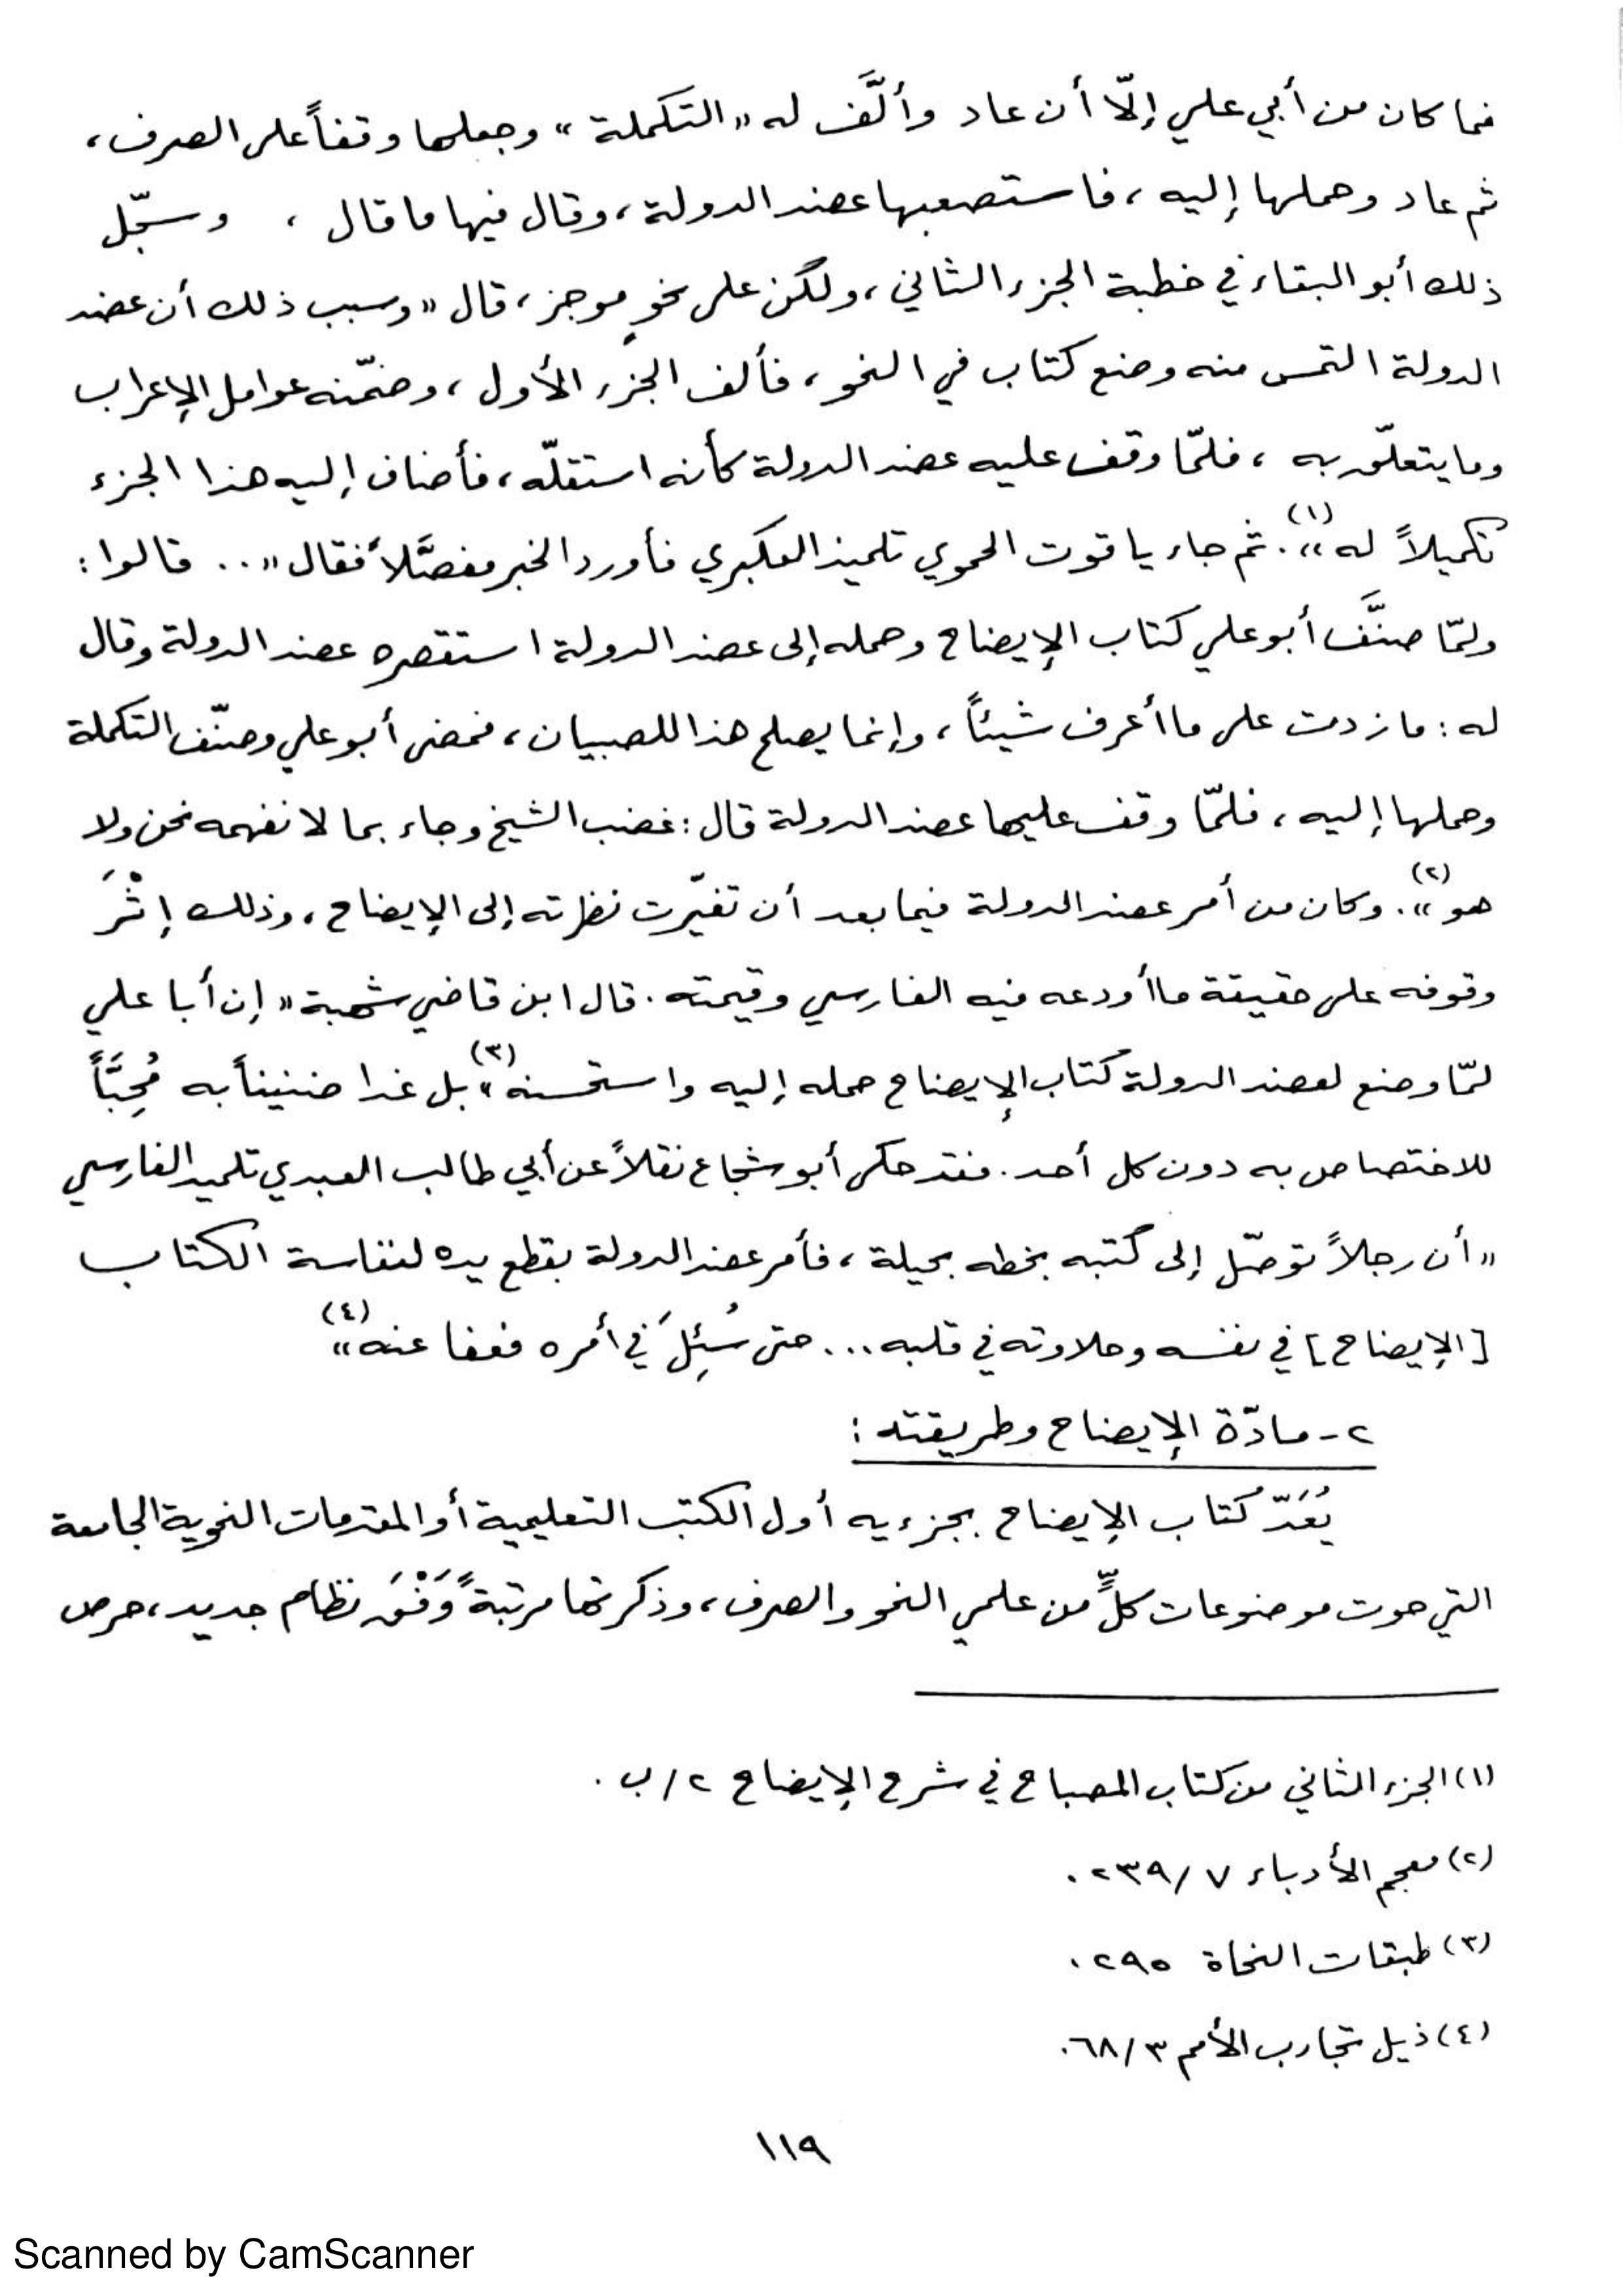 فما كان من أبي علي إلّا أن عاد وألَّف له « التكملة » وجعلها وقفاً على الصرف ،
ثم عاد وحملها إليه ، فاستصعبها عضد الدولة ، وقال فيها ما قال ، وسجّل
ذلك أبو البقاء في خطبة الجزء الثاني ، ولكن على نحوٍ موجز ، قال « وسبب ذلك أن عضد
الدولة التمس منه وضع كتاب في النحو ، فألف الجزء الأول ، وضمّنه عوامل الإعراب
وما يتعلّق به ، فلمّا وقف عليه عضد الدولة كأنه استقلّه ، فأضاف إليه هذا الجزء
تكميلاً له »(١). ثم جاء ياقوت الحموي تلميذ العكبري فأورد الخبر مفصَّلاً فقال « .. قالوا :
ولمّا صنَّف أبو علي كتاب الإيضاح وحمله إلى عضد الدولة استقصره عضد الدولة وقال
له : ما زدت على ما أعرف شيئاً ، وإنما يصلح هذا للصبيان ، فمضى أبو علي وصنّف التكملة
وحملها إليه ، فلمّا وقف عليها عضد الدولة قال : غضب الشيخ وجاء بما لا نفهمه نحن ولا
هو »(٢). وكان من أمر عضد الدولة فيما بعد أن تغيّرت نظرته إلى الإيضاح ، وذلك إثْرَ
وقوفه على حقيقة ما أودعه فيه الفارسي وقيمته . قال ابن قاضي شهبة « إن أبا علي
لمّا وضع لعضد الدولة كتاب الإيضاح حمله إليه واستحسنه »(٣) بل غدا ضنيناً به مُحِبَّاً
للاختصاص به دون كل أحد . فقد حكى أبو شجاع نقلاً عن أبي طالب العبدي تلميذ الفارسي
« أن رجلاً توصّل إلى كتبه بخطه بحيلة ، فأمر عضد الدولة بقطع يده لنفاسة الكتاب
[ الإيضاح ] في نفسه وحلاوته في قلبه ... حتى سُئِلَ في أمره فعفا عنه »(٤)
٢ - مادّة الإيضاح وطريقته :
يُعَدّ كتاب الإيضاح بجزءيه أول الكتب التعليمية أو المقدمات النحوية الجامعة
التي حوت موضوعات كلٍّ من علمي النحو والصرف ، وذكرتها مرتبةً وَفْقَ نظام جديد ، حرص
(١) الجزء الثاني من كتاب المصباح في شرح الإيضاح ٢/ب .
(٢) معجم الأدباء ٧/٢٣٩ .
(٣) طبقات النحاة ٢٩٥ .
(٤) ذيل تجارب الأمم ٣/٦٨ .
١١٩
Scanned by CamScanner